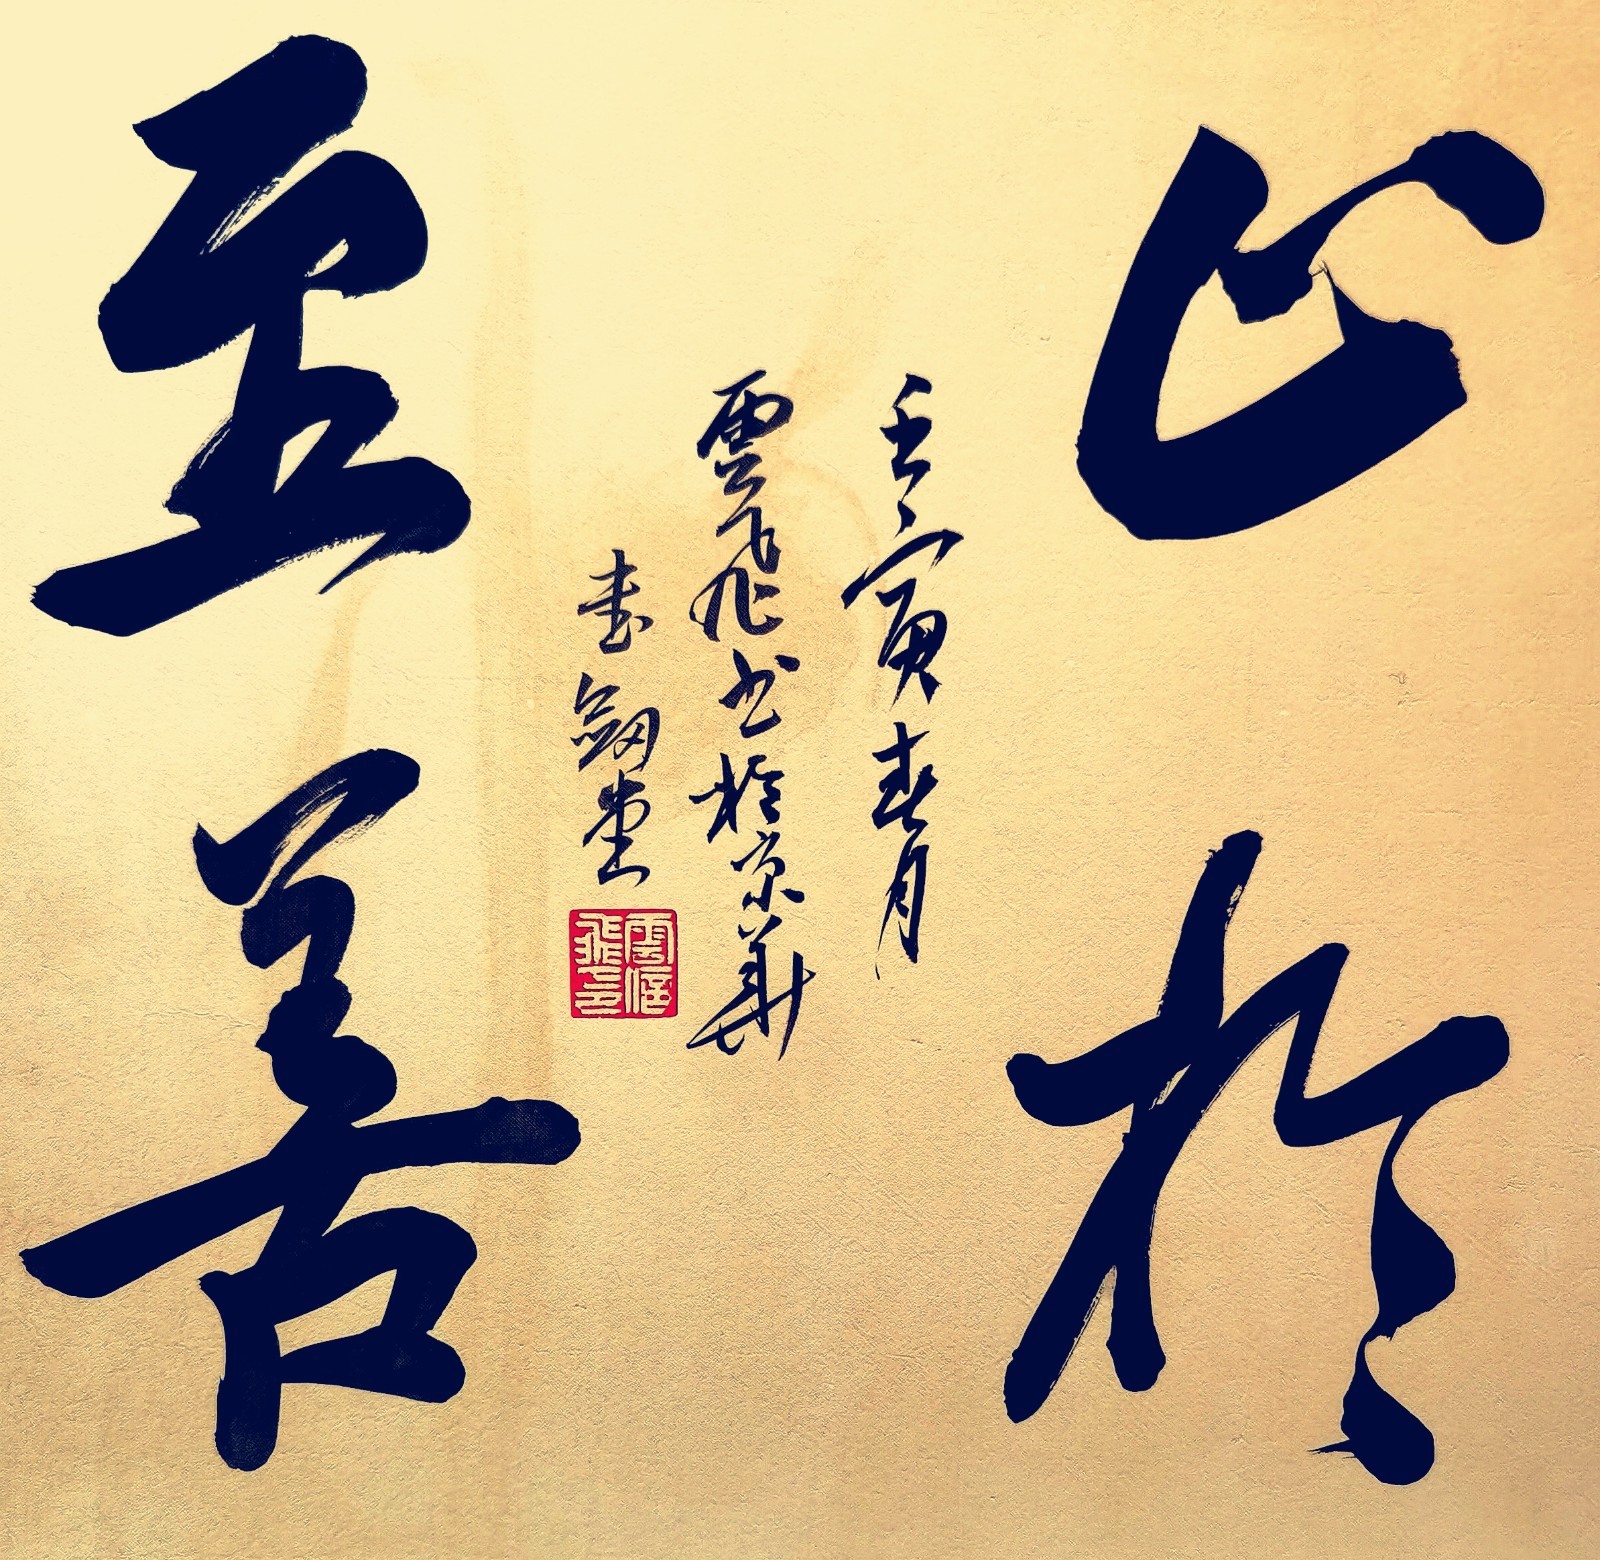 止於
至善
壬寅春月
雲飛书於京華
書劍堂
雲飛印信